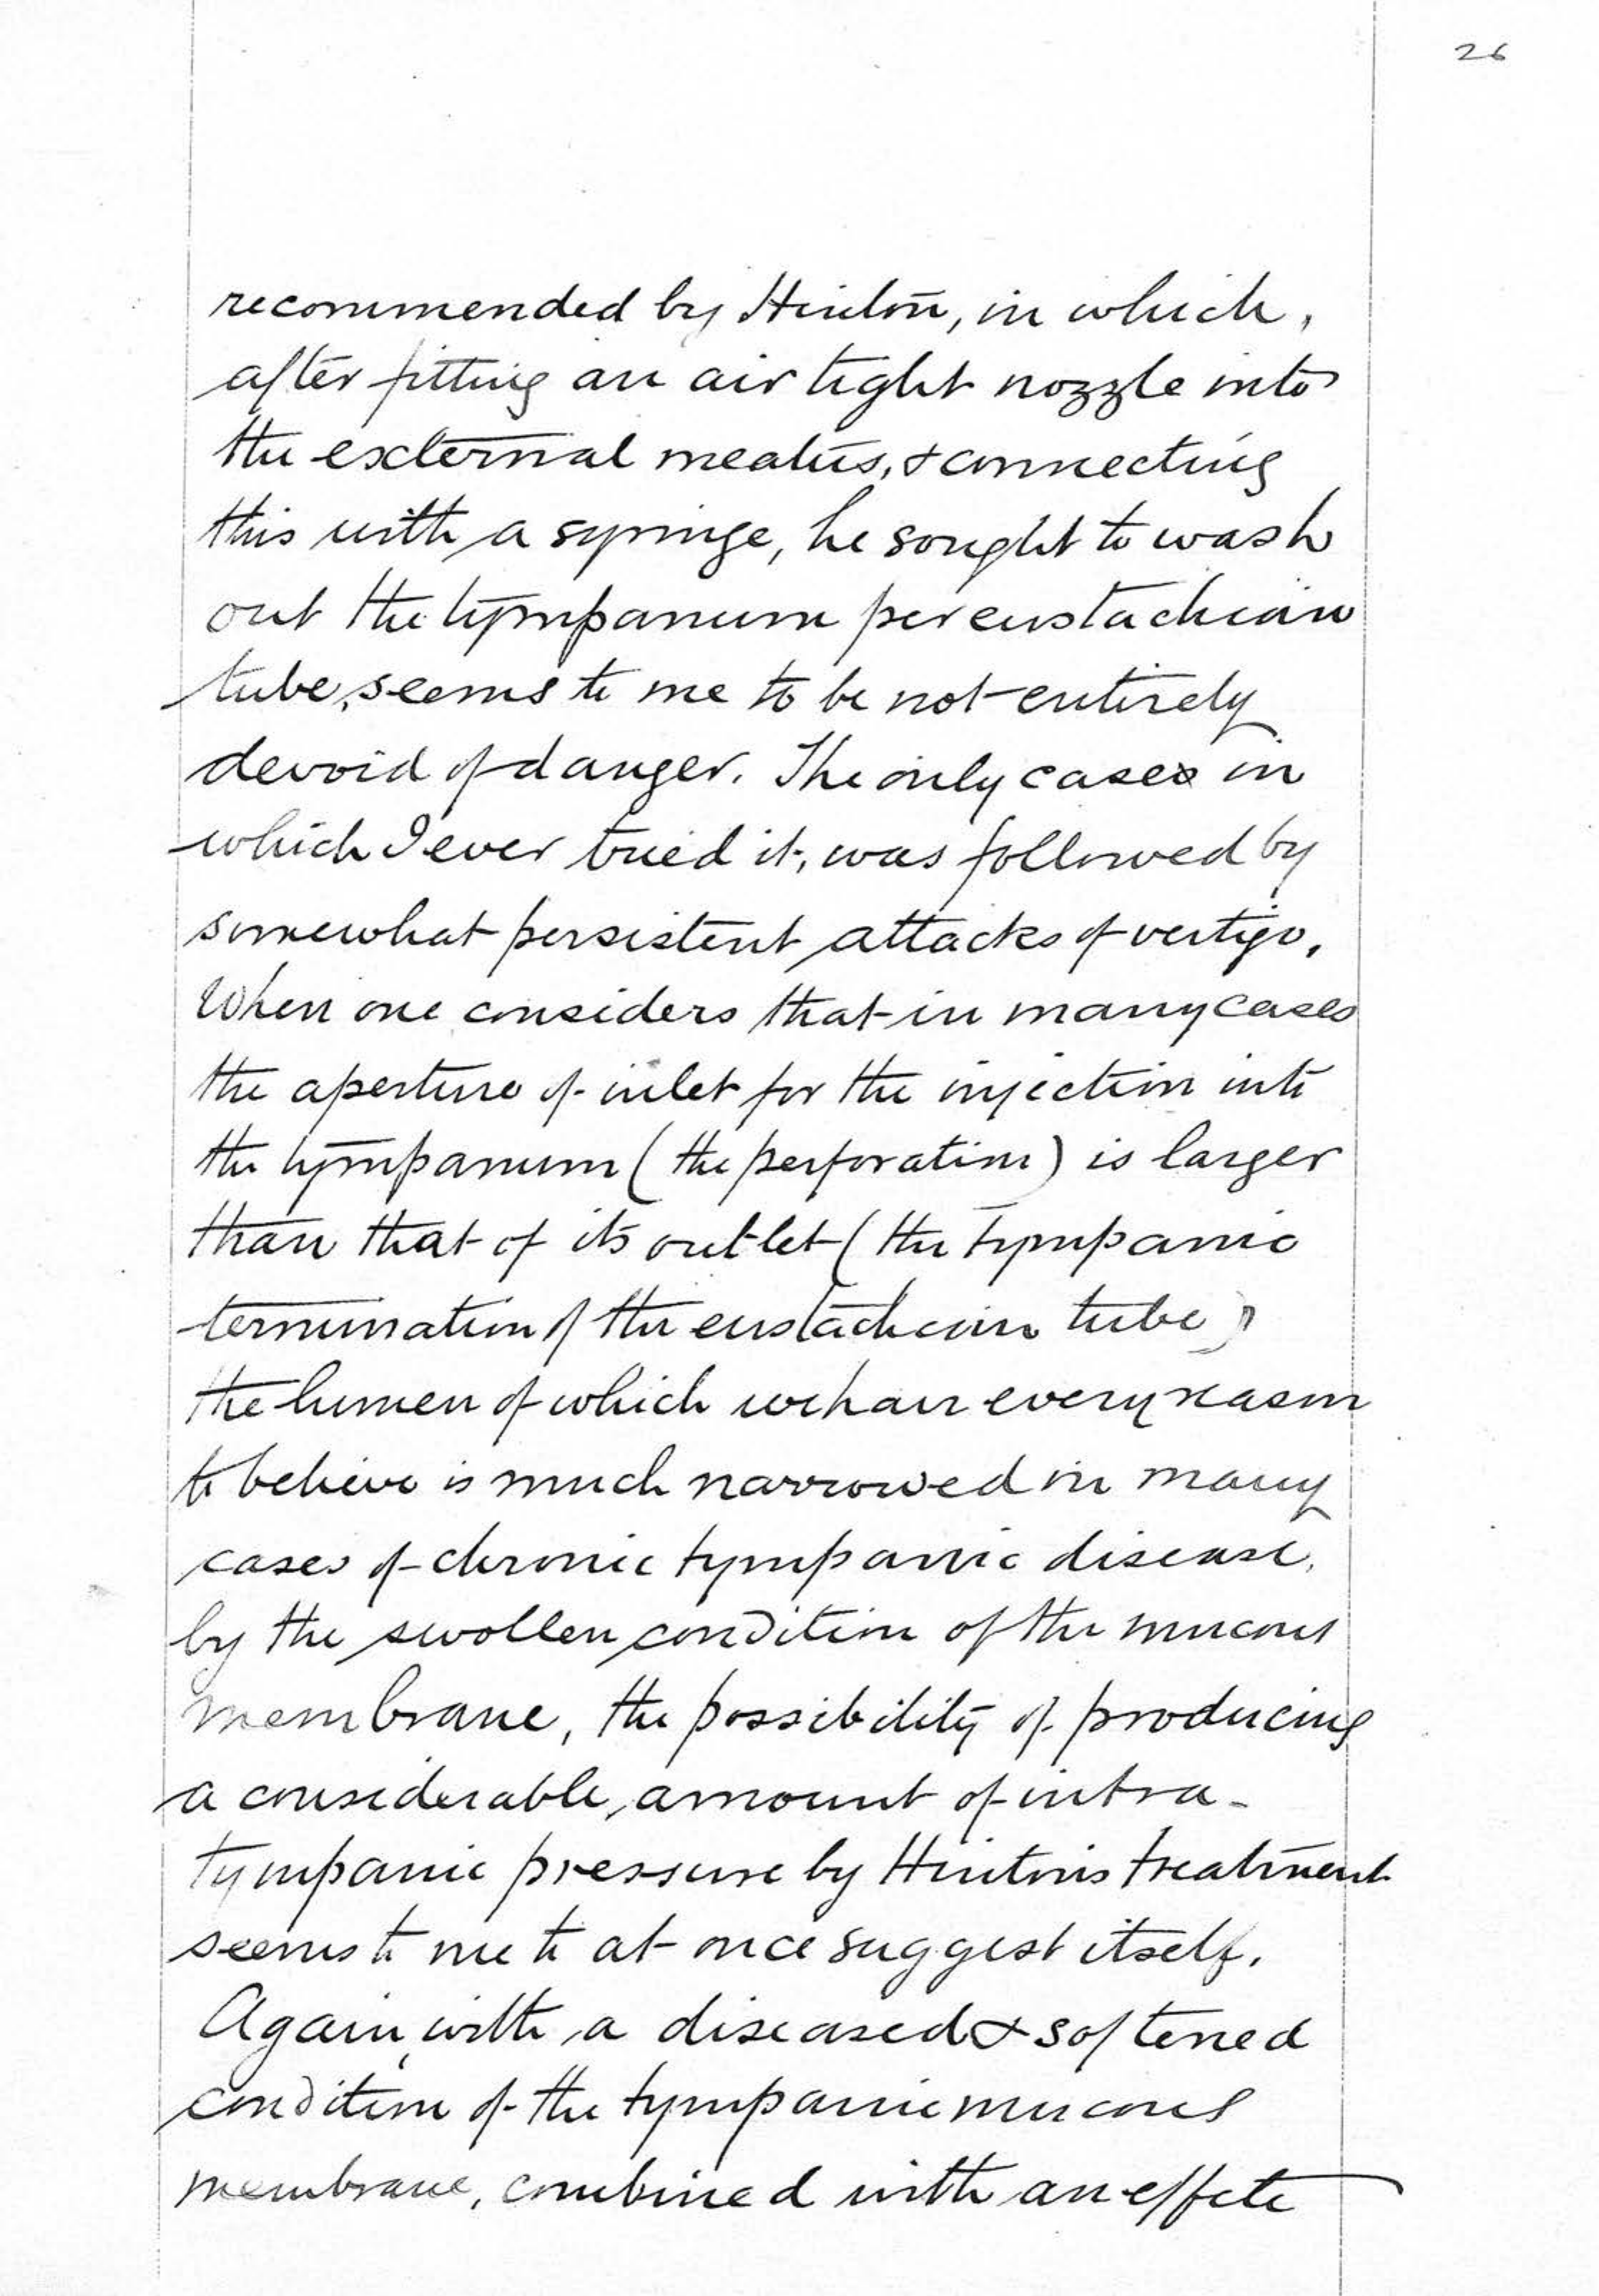 26
recommended by Hinton, in which,
after fitting an air tight nozzle into
the external meatus, & connecting
this with a syringe, he sought to wash
out the tympanum per eustachian
tube, seems to me to be not entirely
devoid of danger. The only cases in
which I ever tried it, was followed by
somewhat persistent attacks of vertigo.
When one considers that in many cases
the aperture of inlet for the injection into
the tympanum (the perforation) is larger
than that of its outlet (the tympanic
termination of the eustachian tube)
the lumen of which we have every reason
to believe is much narrowed in many
cases of chronic tympanic disease,
by the swollen condition of the mucous
membrane, the possibility of producing
a considerable, amount of intra-
tympanic pressure by Hinton's treatment
seems to me to at once suggest itself.
Again, with a diseased & softened
condition of the tympanic mucous
membrane, combined with an effete